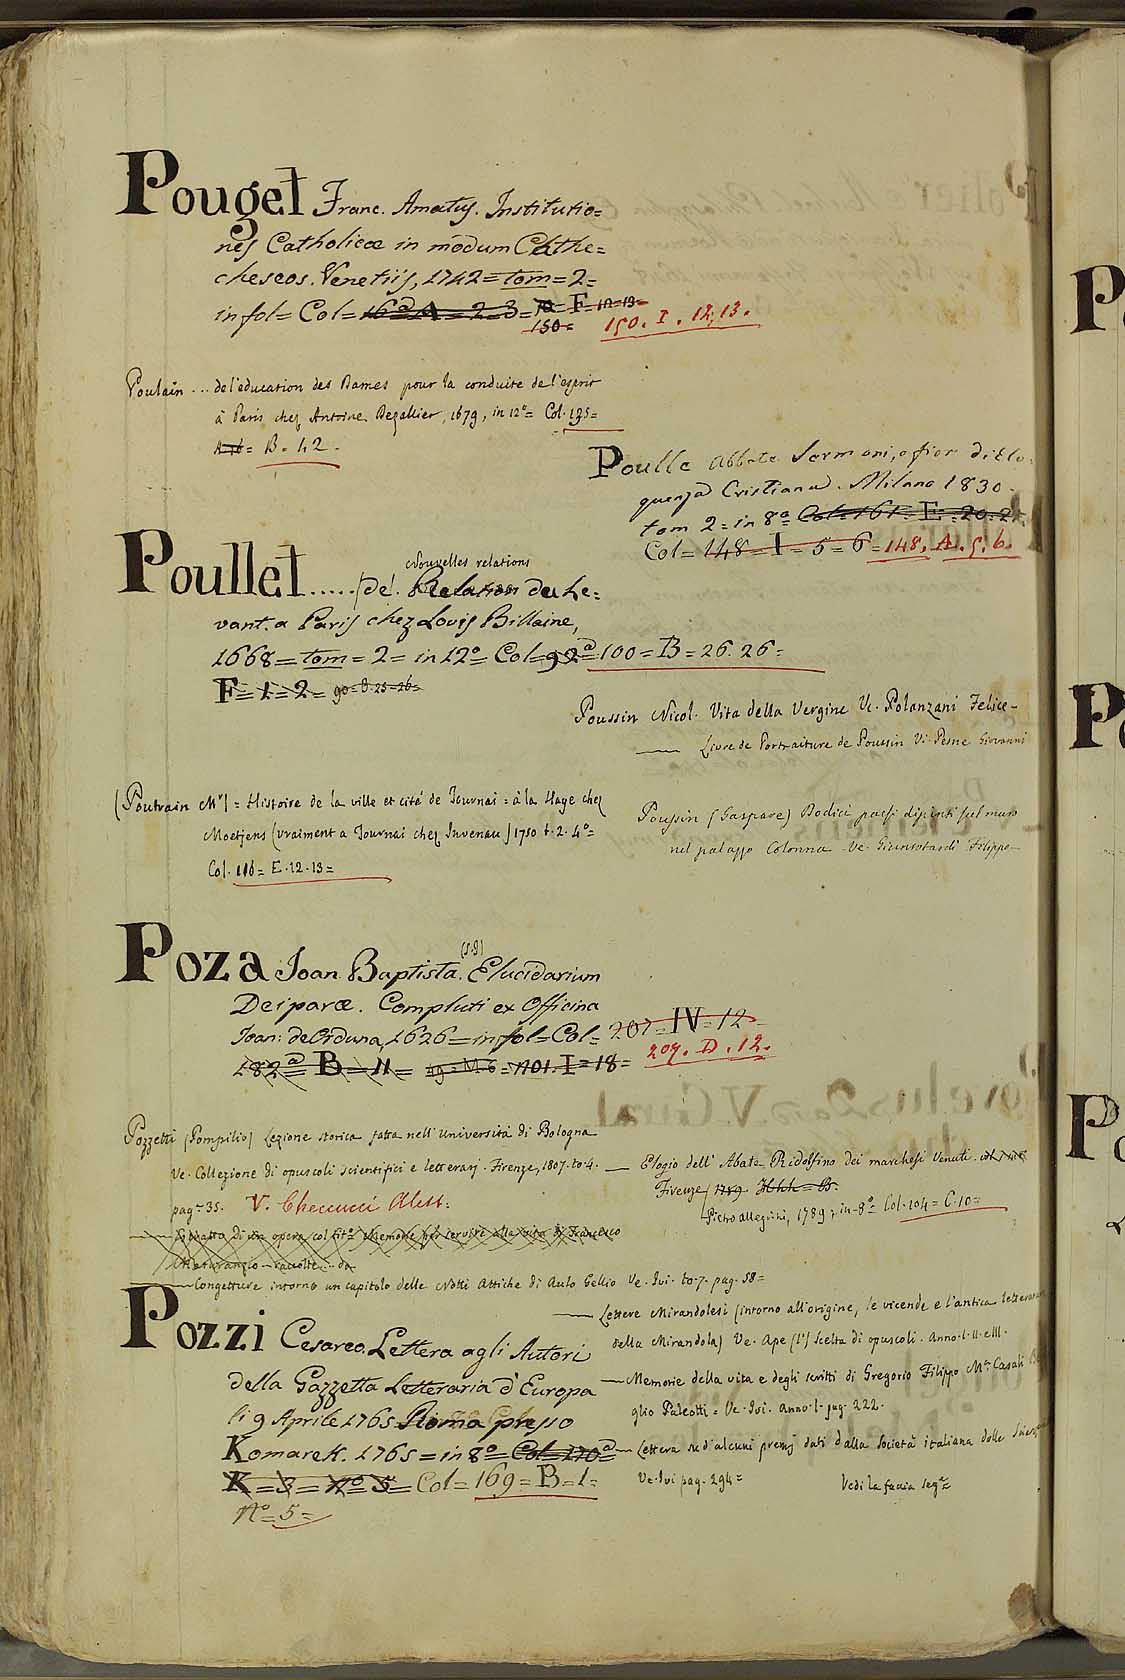 Pouget Franc. Amatus. Institutio=
nes Catholicæ in modum Cathe=
cheseos. Venetiis, 1742 = tom = 2 =
in fol = Col = 16ᵃ A = 2 = 3 = F = 12 = 13 =
150 = 150. I. 12, 13.
Poulain ... de l'education des Dames pour la conduite de l'esprit
à Paris chez Antoine Dezallier, 1679, in 12º = Col. 135 =
= B. 42.
Poulle Abbate Sermoni, o fior d'Elo=
quenza Cristiana. Milano 1830.
tom 2 = in 8º Col = 161 = E = 20 = 2
Col = 148 = I = 5 = 6 = 148. A. 5. 6.
Nouvelles relations
Poullet ..... de! Relation du Le=
vant. a Paris chez Louis Billaine,
1668 = tom = 2 = in 12º = Col = 92ᵃ = 100 = B = 26. 26 =
F = 1 = 2 = 90 = 25 = 26 =
Poussin Nicol. Vita della Vergine V. Polanzani Felice -
— Livre de Portraiture de Poussin V. Pesne Giovanni
(Poutrain Mʳ) = Histoire de la ville et cité de Tournai = à la Haye chez
Moetjens (vraiment a Tournai chez Jovenau) 1750 t. 2. 4º =
Col. 116 = E. 12. 13 =
Poussin (Gaspare) Dodici paesi dipinti sul muro
nel palazzo Colonna - Ve. Giuntotardi Filippo -
Poza Joan Baptista. (S.J) Elucidarium
Deiparæ. Compluti ex Officina
Joan: de Orduna, 1626 = in fol = Col = 207 = IV = 12 =
182ᵃ = B = 11 = 49 = M. 6 = 1101. I = 18 = 207. D. 12.
Pozzetti (Pompilio) Lezione storica fatta nell'università di Bologna
Ve. Collezione di opuscoli scientifici e letterarj. Firenze, 1807. to. 4.
pag. 35. V. Checcucci Aless:
— opera col titº Memorie per servire alla vita di Francesco
Maturanzio - raccolte .. da
— Congetture intorno un capitolo delle Notti Attiche di Aulo Gellio Ve. Ivi. to. 7. pag. 58 =
— Elogio dell'Abate Ridolfino dei marchesi Venuti.
Firenze 1789 = B.
Pietro Allegrini, 1789, in-8º = Col. 104 = C. 10 =
— Lettere Mirandolesi (intorno all'origine, le vicende e l'antica letteratura
della Mirandola) Ve. Ape (l') scelta di opuscoli. Anno. I. II. e III.
— Memorie della vita e degli scritti di Gregorio Filippo Mª Casali
glio Paleotti = Ve. Ivi. anno. I. pag. 222.
— Lettera su d'alcuni premj dati dalla Società italiana delle Scienze
Ve. Ivi pag. 294 = Vedi la faccia segᵗᵉ
Pozzi Cesareo. Lettera agli Autori
della Gazzetta Letteraria d'Europa
li 9 Aprile 1765. Roma presso
Komarek. 1765 = in 8º = Col = 170ᵃ =
K = 3 = Nº 5 = Col = 169 = B = 1 =
Nº = 5 =